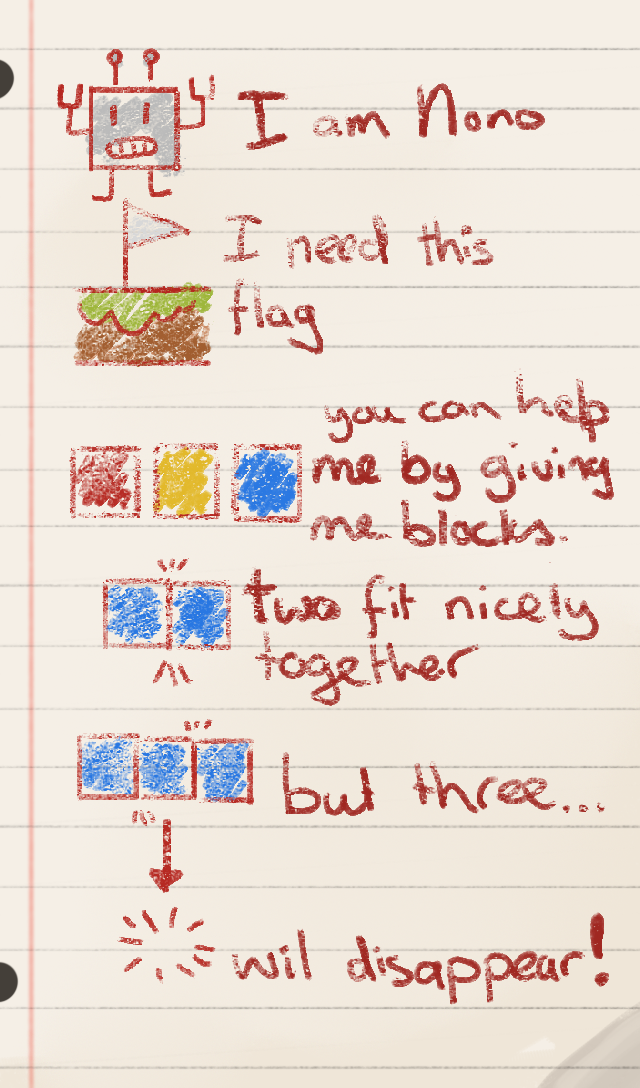 I am Nono
I need this
flag
you can help
me by giving
me blocks.
two fit nicely
together
but three...
wil disappear!